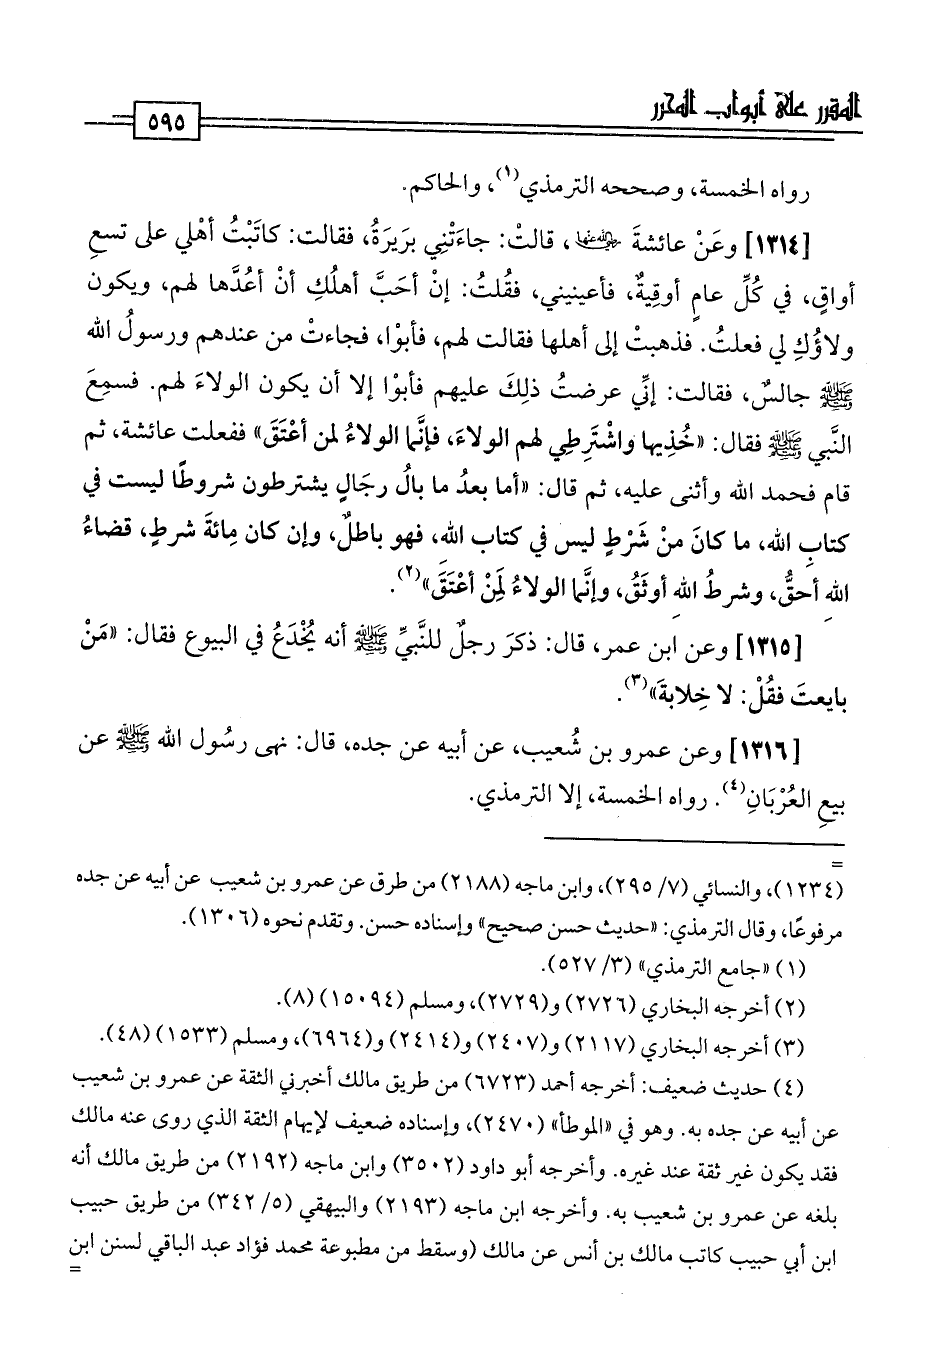 المقرر على أبواب المحرر
٥٩٥
رواه الخمسة، وصححه الترمذي(١)، والحاكم.
[١٣١٤] وعَنْ عائشةَ رضي الله عنها، قالتْ: جاءَتْنِي بَرَيَرَةُ، فقالت: كاتَبْتُ أهْلي على تسعِ
أواقٍ، في كُلِّ عامٍ أوقِيةٌ، فأعينيني، فقُلتُ: إنْ أحَبَّ أهلُكِ أنْ أعُدَّها لهم، ويكون
ولاؤُكِ لي فعلتُ. فذهبتْ إلى أهلها فقالت لهم، فأبوْا، فجاءتْ من عندهم ورسولُ الله
ﷺ جالسٌ، فقالت: إنِّي عرضتُ ذلِكَ عليهم فأبوْا إلا أن يكون الولاءَ لهم. فسمِعَ
النَّبي ﷺ فقال: «خُذِيها واشْتَرِطِي لهم الولاءَ، فإنَّما الولاءُ لمن أعْتَقَ» ففعلت عائشة، ثم
قام فحمد الله وأثنى عليه، ثم قال: «أما بعدُ ما بالُ رجَالٍ يشترطون شروطًا ليست في
كتابِ الله، ما كانَ منْ شَرْطٍ ليس في كتاب الله، فهو باطلٌ، وإن كان مِائةَ شرطٍ، قضاءُ
اللهِ أحقُّ، وشرطُ اللهِ أوثَقُ، وإنَّما الولاءُ لِمَنْ أعْتَقَ»(٢).
[١٣١٥] وعن ابن عمر، قال: ذكرَ رجلٌ للنَّبيِّ ﷺ أنه يُخْدَعُ في البيوع فقال: «مَنْ
بايعتَ فقُلْ: لا خِلابةَ»(٣).
[١٣١٦] وعن عمرو بن شُعيب، عن أبيه عن جده، قال: نهى رسُول الله ﷺ عن
بيعِ العُرْبَانِ(٤). رواه الخمسة، إلا الترمذي.
=
(١٢٣٤)، والنسائي (٧/ ٢٩٥)، وابن ماجه (٢١٨٨) من طرق عن عمرو بن شعيب عن أبيه عن جده
مرفوعًا، وقال الترمذي: «حديث حسن صحيح» وإسناده حسن. وتقدم نحوه (١٣٠٦).
(١) «جامع الترمذي» (٣/ ٥٢٧).
(٢) أخرجه البخاري (٢٧٢٦) و(٢٧٢٩)، ومسلم (١٥٠٩٤) (٨).
(٣) أخرجه البخاري (٢١١٧) و(٢٤٠٧) و(٢٤١٤) و(٦٩٦٤)، ومسلم (١٥٣٣) (٤٨).
(٤) حديث ضعيف: أخرجه أحمد (٦٧٢٣) من طريق مالك أخبرني الثقة عن عمرو بن شعيب
عن أبيه عن جده به. وهو في «الموطأ» (٢٤٧٠)، وإسناده ضعيف لإيهام الثقة الذي روى عنه مالك
فقد يكون غير ثقة عند غيره. وأخرجه أبو داود (٣٥٠٢) وابن ماجه (٢١٩٢) من طريق مالك أنه
بلغه عن عمرو بن شعيب به. وأخرجه ابن ماجه (٢١٩٣) والبيهقي (٥/ ٣٤٢) من طريق حبيب
ابن أبي حبيب كاتب مالك بن أنس عن مالك (وسقط من مطبوعة محمد فؤاد عبد الباقي لسنن ابن
=